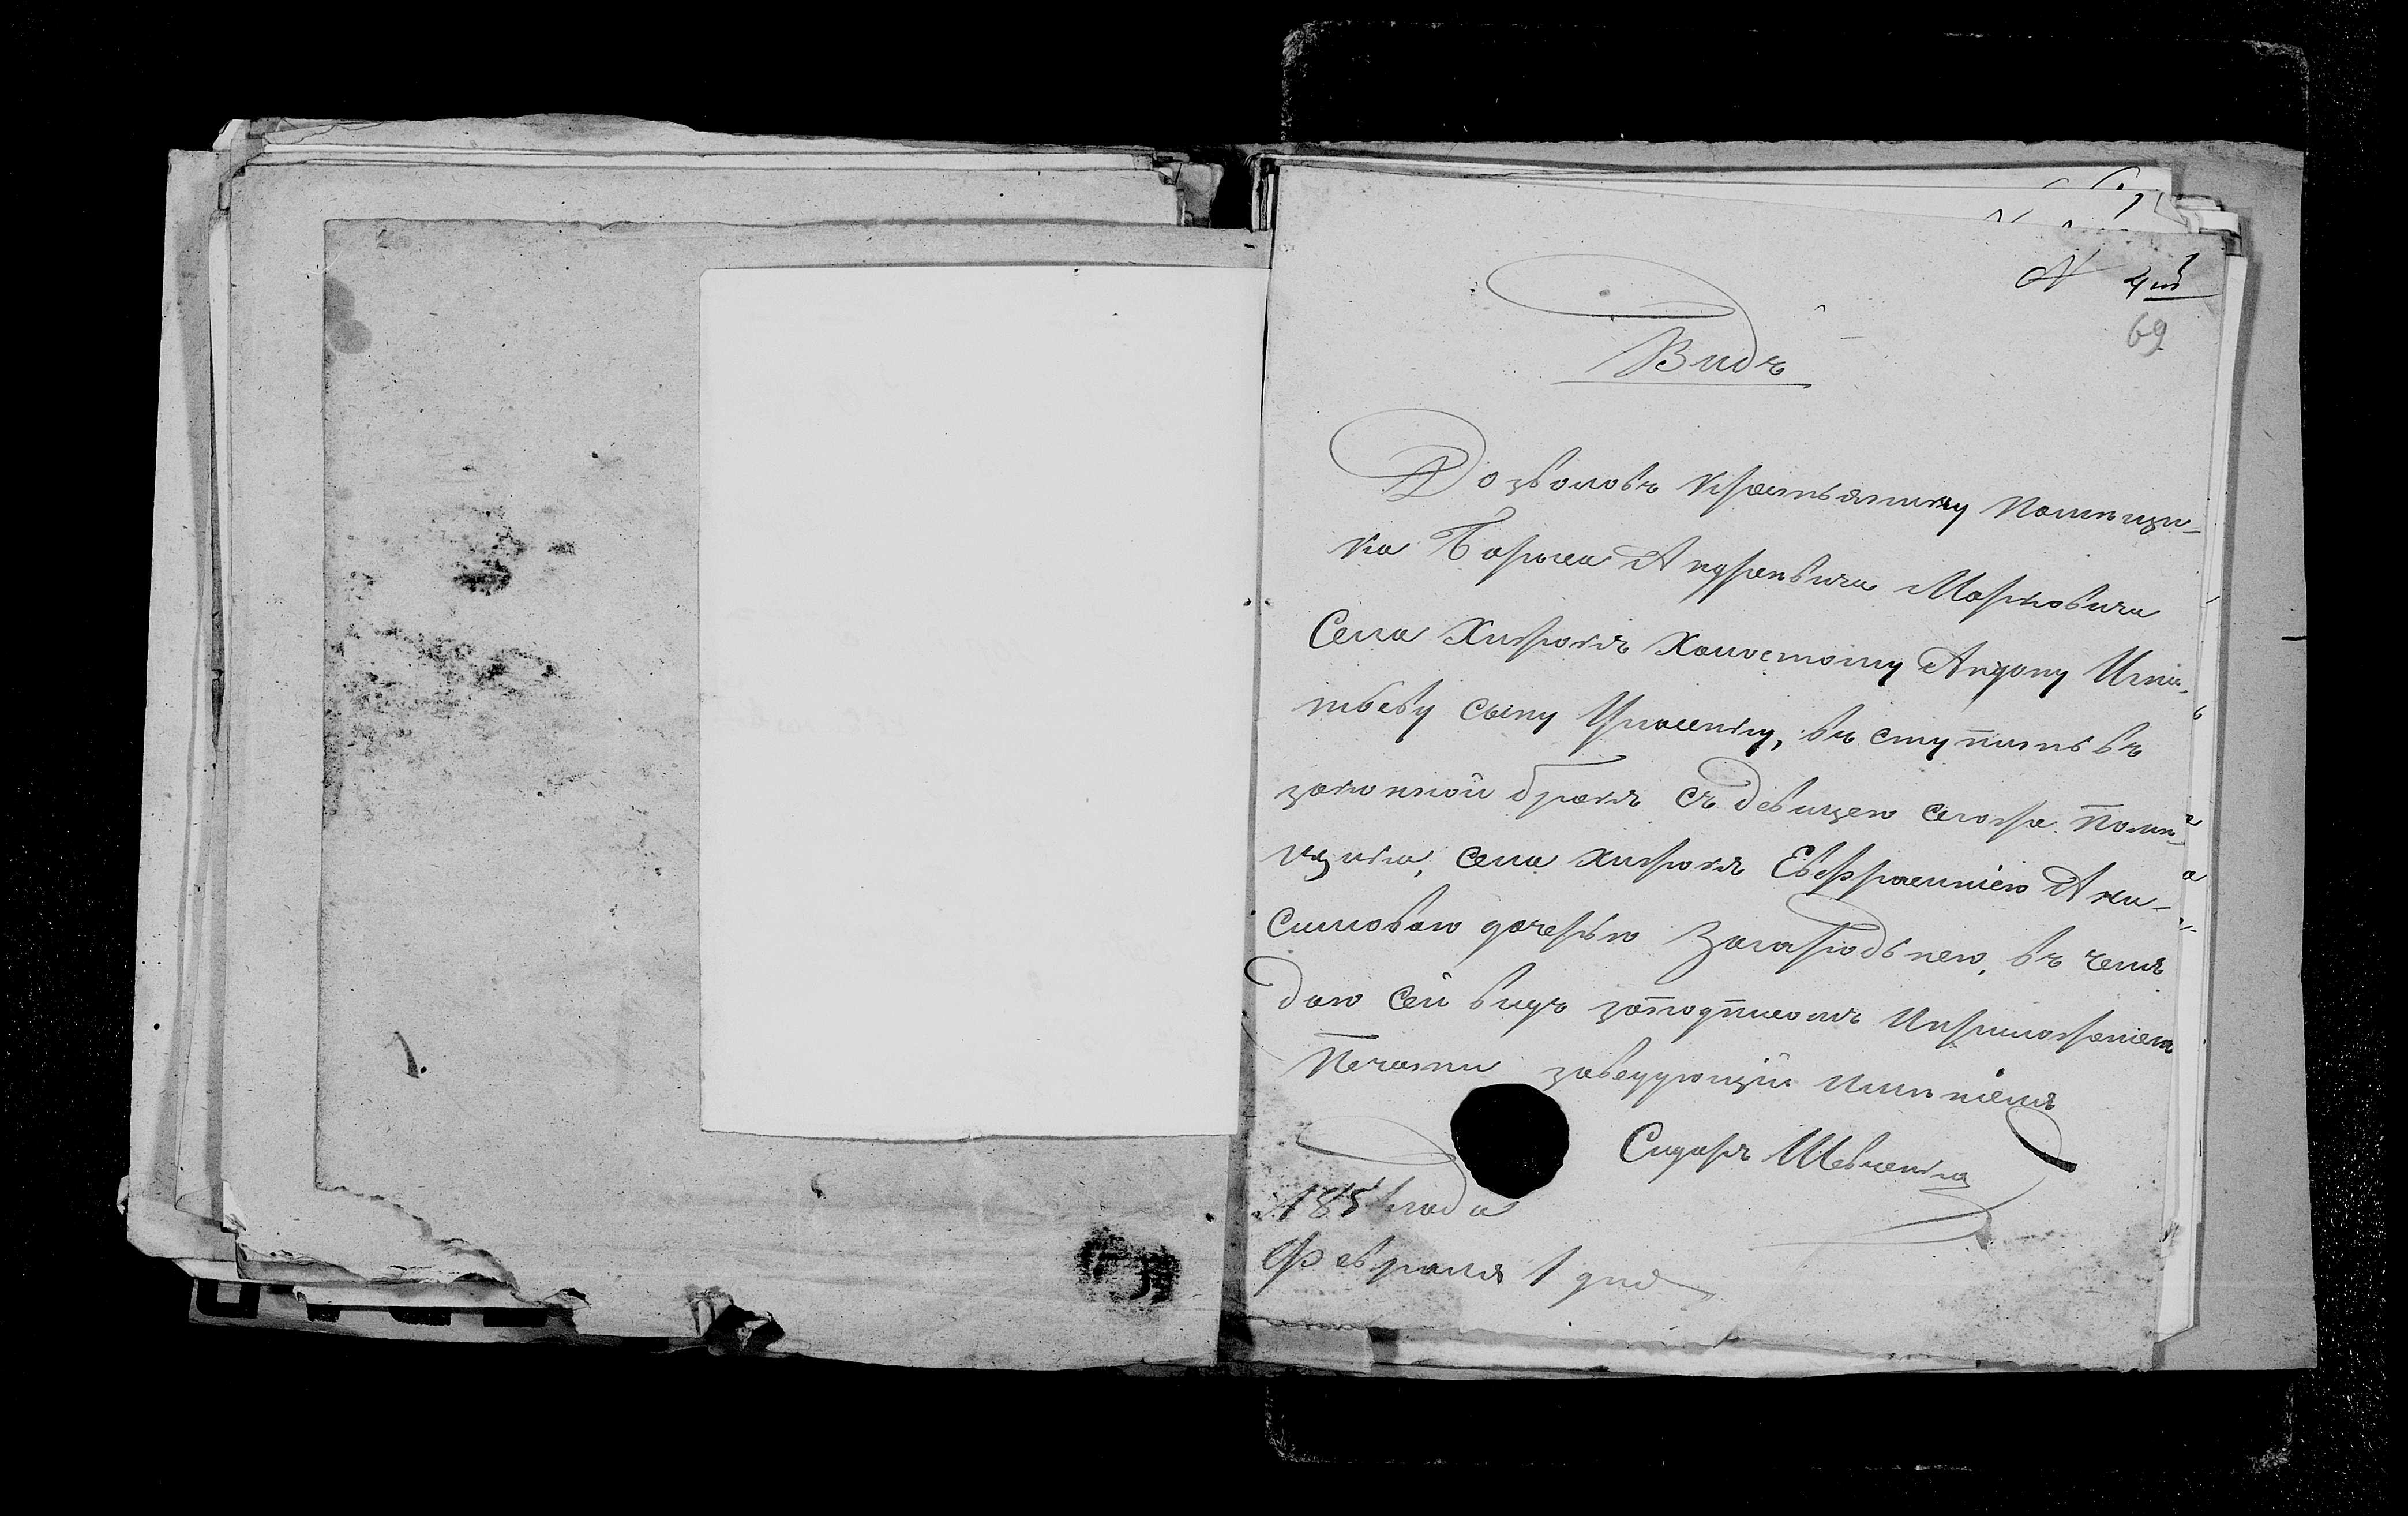 N 4й
69
Видъ
Дозволовъ крестьянину помѣщи-
ка Бориса Андреевича Марковича
Села Хитрокъ Холостому Андону Игна-
тьеву сыну Уласенку, въ ступить въ
законной бракъ съ девицею тогоже помѣ-
щика, села хитрокъ Евфросиніею Ани-
симовою дочерью въ чемъ
даю сей видъ заподписомъ Иприложеніемъ
Печати заведующій Имѣніемъ
Сидоръ Шевченко
года
Февраля 1 дня